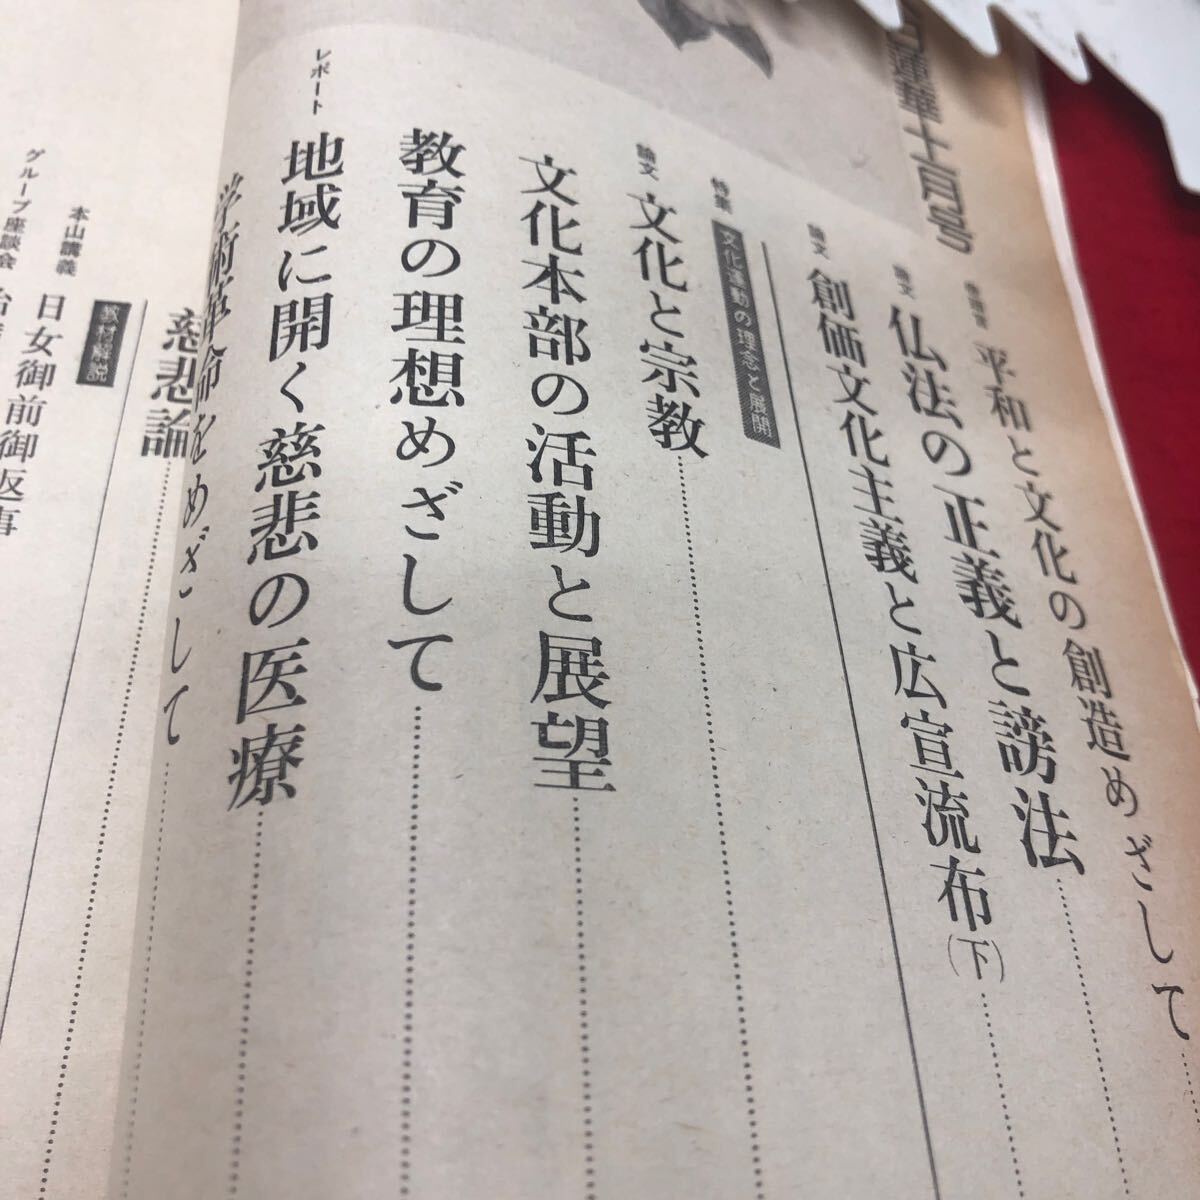 白蓮華十一月号
平和と文化の創造めざして
論文 仏法の正義と謗法
論文 創価文化主義と広宣流布(下)
特集 文化運動の理念と展開
論文 文化と宗教
文化本部の活動と展望
教育の理想めざして
レポート 地域に開く慈悲の医療
学術革命をめざして
慈悲論
教材解説
本山講義 日女御前御返事
グループ座談会